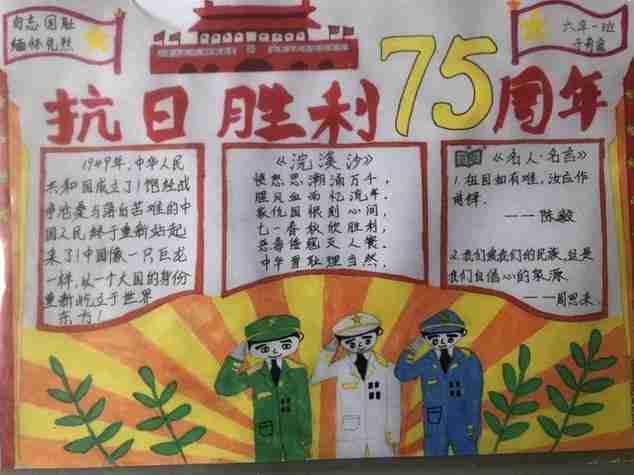 勿忘国耻
缅怀先烈
六年一班
抗日胜利75周年
1949年,中华人民
共和国成立了!饱经战
争沧桑与落后苦难的中
国人民终于重新站起
来了!中国像一只巨龙
一样,以一个大国的身份
重新屹立于世界
东方!
《浣溪沙》
愤怒思潮涌万千,
腥风血雨忆流年。
家仇国恨刻心间,
七一春秋欣胜利,
恶毒倭寇灭人寰。
中华 理当然。
《名人·名言》
1.祖国如有难,汝应作
前锋。
——陈毅
2.我们爱我们的民族,这是
我们自信心的来源
——周恩来.